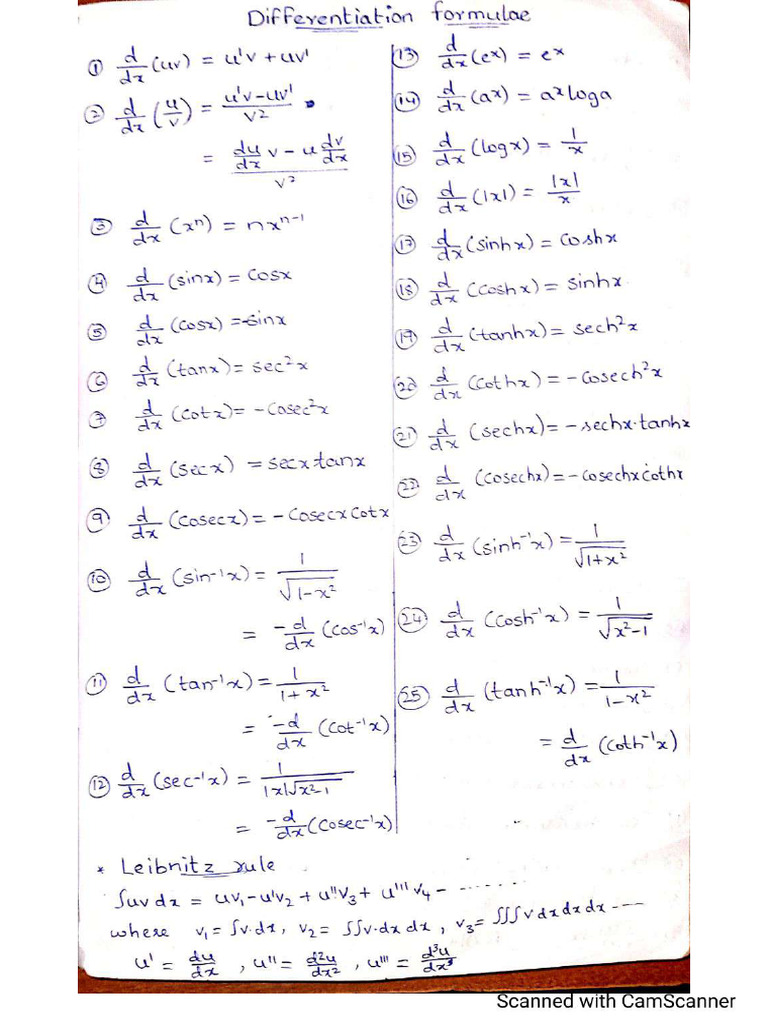 Differentiation formulae
① d/dx (uv) = u'v + uv'
② d/dx (u/v) = u'v - uv' / v²
= du/dx v - u dv/dx / v²
③ d/dx (xⁿ) = nxⁿ⁻¹
④ d/dx (sinx) = cosx
⑤ d/dx (cosx) = -sinx
⑥ d/dx (tanx) = sec²x
⑦ d/dx (cotx) = -cosec²x
⑧ d/dx (secx) = secx tanx
⑨ d/dx (cosecx) = -cosecx cotx
⑩ d/dx (sin⁻¹x) = 1/√(1-x²)
= -d/dx (cos⁻¹x)
⑪ d/dx (tan⁻¹x) = 1/(1+x²)
= -d/dx (cot⁻¹x)
⑫ d/dx (sec⁻¹x) = 1/(|x|√(x²-1))
= -d/dx (cosec⁻¹x)
⑬ d/dx (eˣ) = eˣ
⑭ d/dx (aˣ) = aˣ loga
⑮ d/dx (logx) = 1/x
⑯ d/dx (|x|) = |x|/x
⑰ d/dx (sinhx) = coshx
⑱ d/dx (coshx) = sinhx
⑲ d/dx (tanhx) = sech²x
⑳ d/dx (cothx) = -cosech²x
㉑ d/dx (sechx) = -sechx·tanhx
㉒ d/dx (cosechx) = -cosechx cothx
㉓ d/dx (sinh⁻¹x) = 1/√(1+x²)
㉔ d/dx (cosh⁻¹x) = 1/√(x²-1)
㉕ d/dx (tanh⁻¹x) = 1/(1-x²)
= d/dx (coth⁻¹x)
* Leibnitz rule
∫uv dx = uv₁ - u'v₂ + u''v₃ + u'''v₄ - .......
where v₁ = ∫v·dx, v₂ = ∫∫v·dx dx, v₃ = ∫∫∫v dx dx dx ----
u' = du/dx, u'' = d²u/dx², u''' = d³u/dx³
Scanned with CamScanner